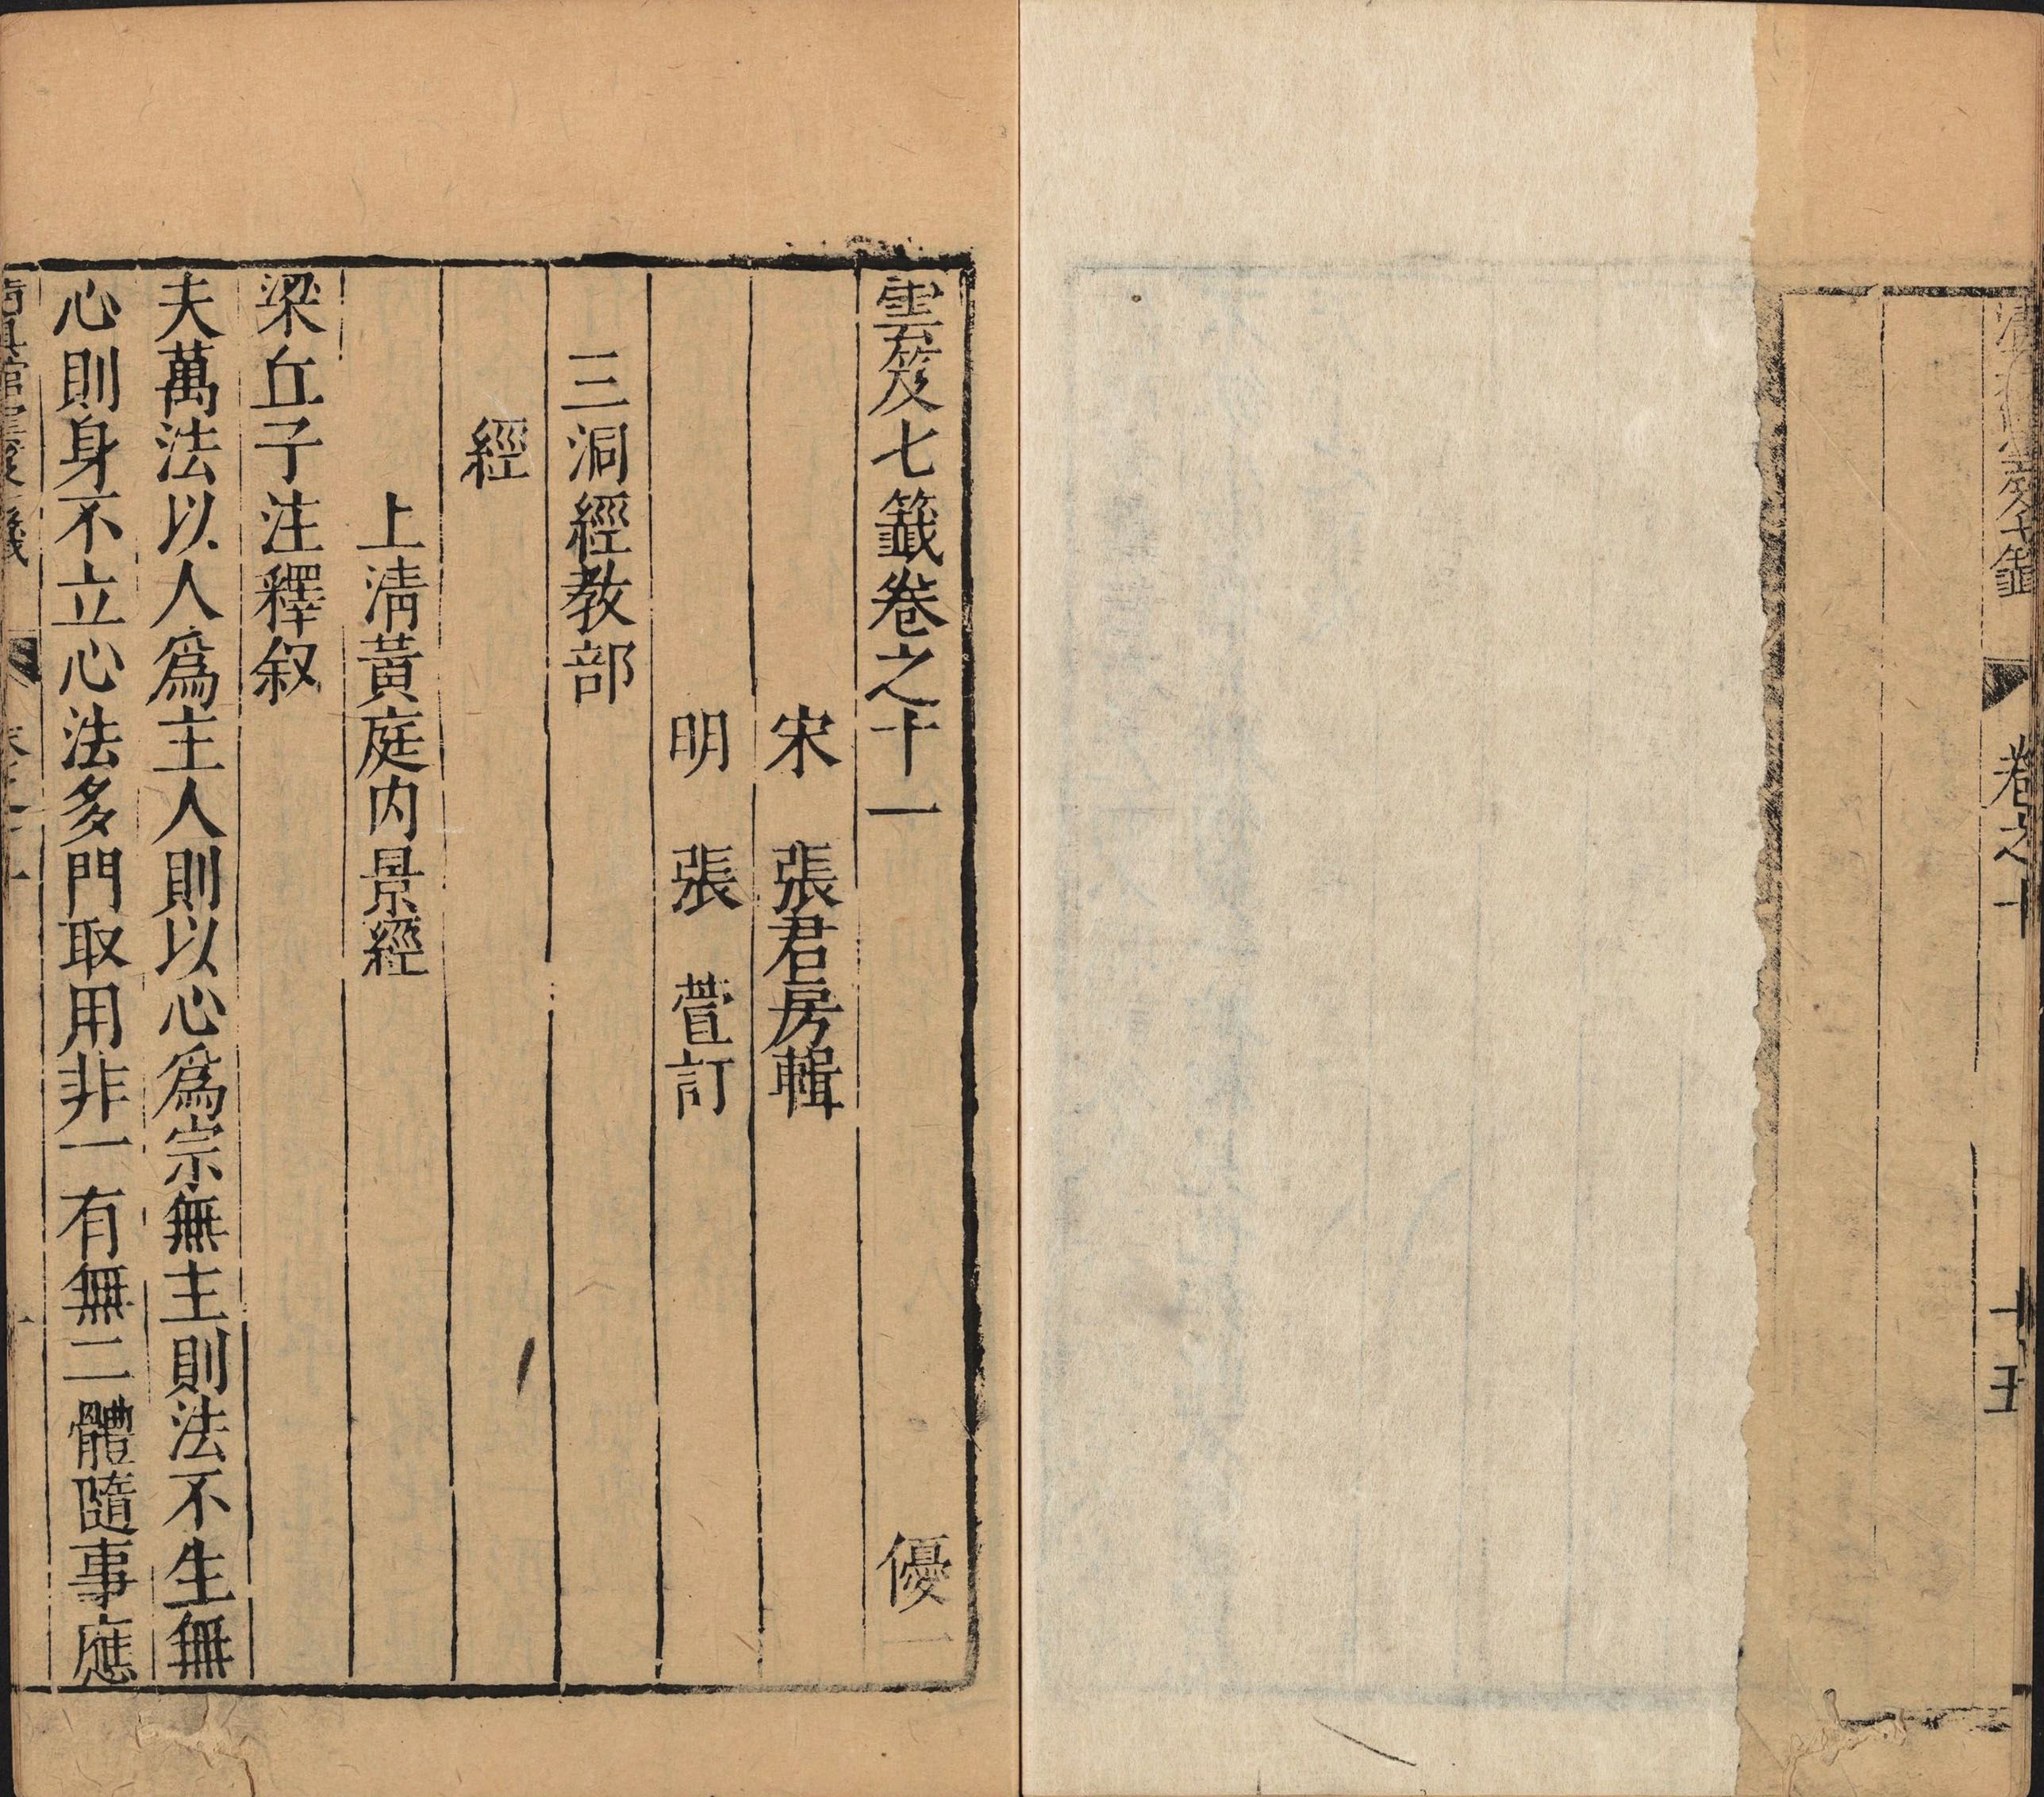 卷之十
十五
雲笈七籤卷之十一 優一
宋 張君房輯
明 張 萱訂
三洞經教部
經
上清黃庭內景經
梁丘子注釋叙
夫萬法以人爲主人則以心爲宗無主則法不生無
心則身不立心法多門取用非一有無二體隨事應